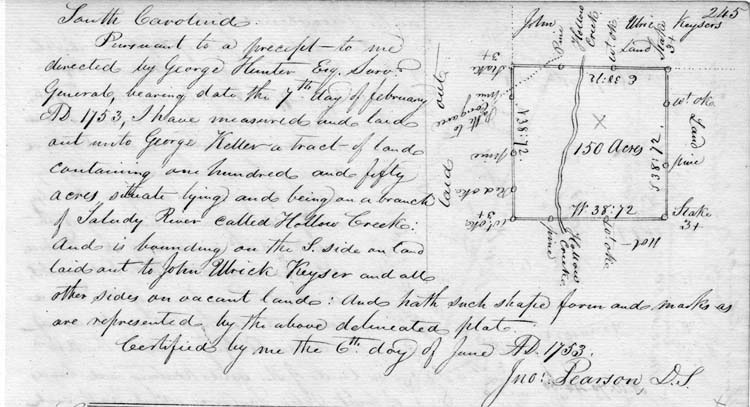 245
South Carolina.
Pursuant to a precept to me
directed by George Hunter Esq. Survr.
General, bearing date the 7th day of february
AD. 1753, I have measured and laid
out unto George Keller a tract of land
containing one hundred and fifty
acres situate lying and being on a branch
of Saludy River called Hollow Creek:
And is bounding on the S. side on land
laid out to John Ulrick Keyser and all
other sides on vacant land: And hath such shape form and marks as
are represented by the above delineated plat.
Certified by me the 6th day of June AD. 1753.
Jno: Pearson D.S.
John Ulrick Keysers
Land
Hollow
Creek
Pine
wt oke
Stake
3+
Stake
3+
E 38:72
pine
Path to
Congaree
N 38:72
pine
Red oke
wt oke
3+
150 Acres
S 38:72
wt oke
Land
pine
W 38:72
Stake
3+
pine
Hollow
Creeke
wt oke
Not
laid out